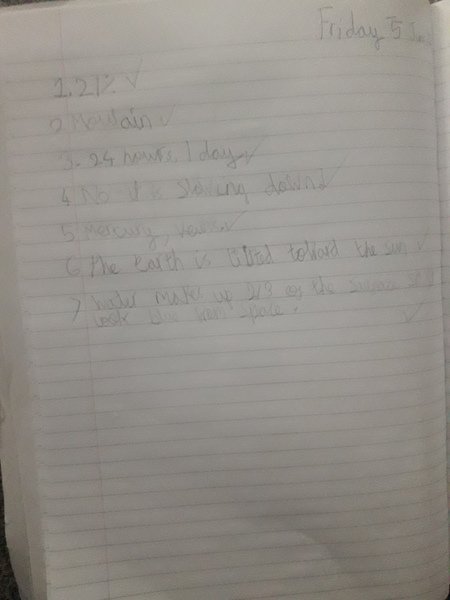 Friday 5
1. 21% ✓
2 Mountain ✓
3. 24 hours, 1 day ✓
4 No it is slowing down ✓
5 Mercury, Venus ✓
6 the Earth is tilted toward the sun ✓
7 water makes up 2/3 of the surface
look blue from space. ✓